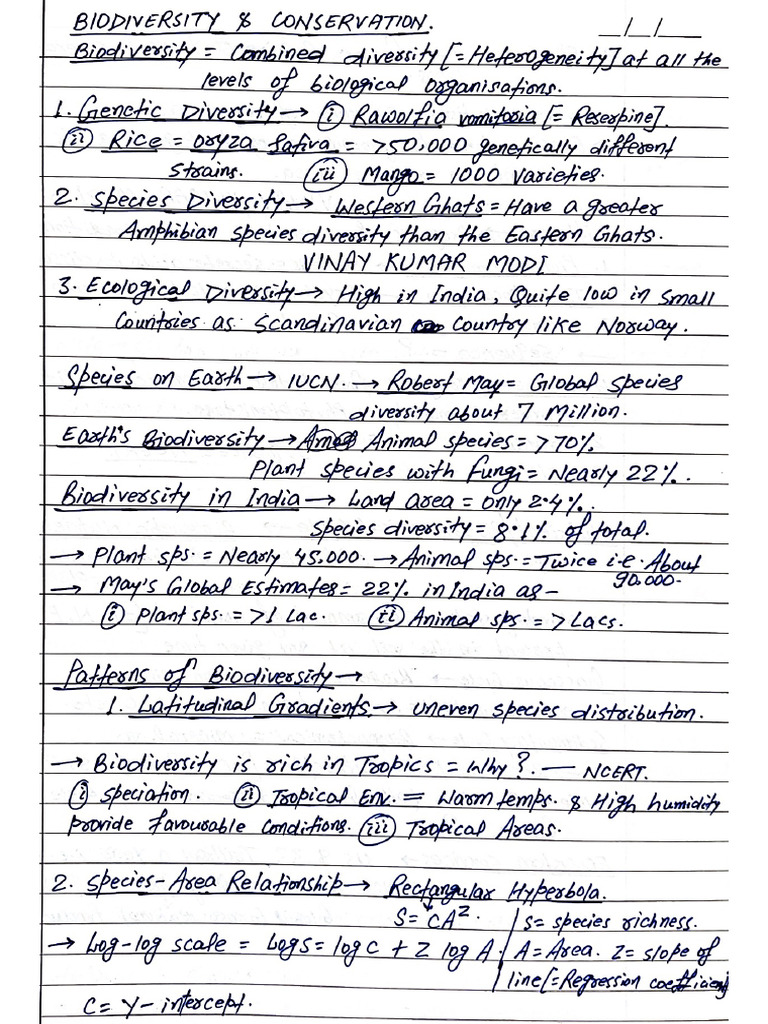 BIODIVERSITY & CONSERVATION. _/_/__
Biodiversity = Combined diversity [= Heterogeneity] at all the
levels of biological organisations.
1. Genetic Diversity → (i) Rawolfia vomitoria [= Reserpine].
(ii) Rice = oryza Sativa = >50,000 genetically different
strains. (iii) Mango = 1000 varieties.
2. Species Diversity → Western Ghats = Have a greater
Amphibian species diversity than the Eastern Ghats.
VINAY KUMAR MODI
3. Ecological Diversity → High in India, Quite low in small
Countries as Scandinavian Country like Norway.
Species on Earth → IUCN. → Robert May = Global species
diversity about 7 Million.
Earth's Biodiversity → Animal species = >70%.
Plant species with Fungi = Nearly 22%.
Biodiversity in India → Land area = only 2.4%.
Species diversity = 8.1% of total.
→ Plant sps. = Nearly 45.000. → Animal sps. = Twice i.e. About
90.000.
→ May's Global Estimates = 22% in India as -
(i) Plant sps. = >1 Lac. (ii) Animal sps. = > Lacs.
Patterns of Biodiversity →
1. Latitudinal Gradients. → uneven species distribution.
→ Biodiversity is rich in Tropics = Why?. — NCERT.
(i) Speciation. (ii) Tropical Env. = Warm temps. & High humidity
provide favourable conditions. (iii) Tropical Areas.
2. Species-Area Relationship → Rectangular Hyperbola.
S = CA^Z. | S = species richness.
→ Log-log scale = Log S = log C + Z log A. | A = Area. Z = slope of
line [= Regression coefficien]
C = Y-intercept.